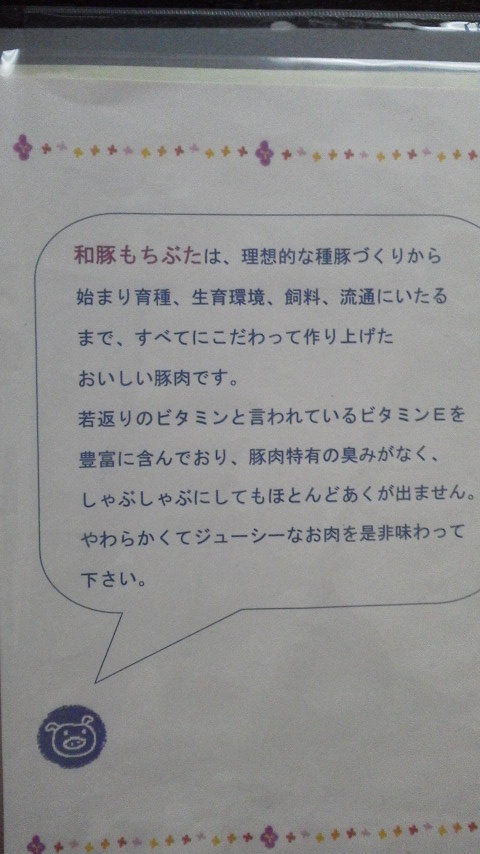 和豚もちぶたは、理想的な種豚づくりから
始まり育種、生育環境、飼料、流通にいたる
まで、すべてにこだわって作り上げた
おいしい豚肉です。
若返りのビタミンと言われているビタミンEを
豊富に含んでおり、豚肉特有の臭みがなく、
しゃぶしゃぶにしてもほとんどあくが出ません。
やわらかくてジューシーなお肉を是非味わって
下さい。